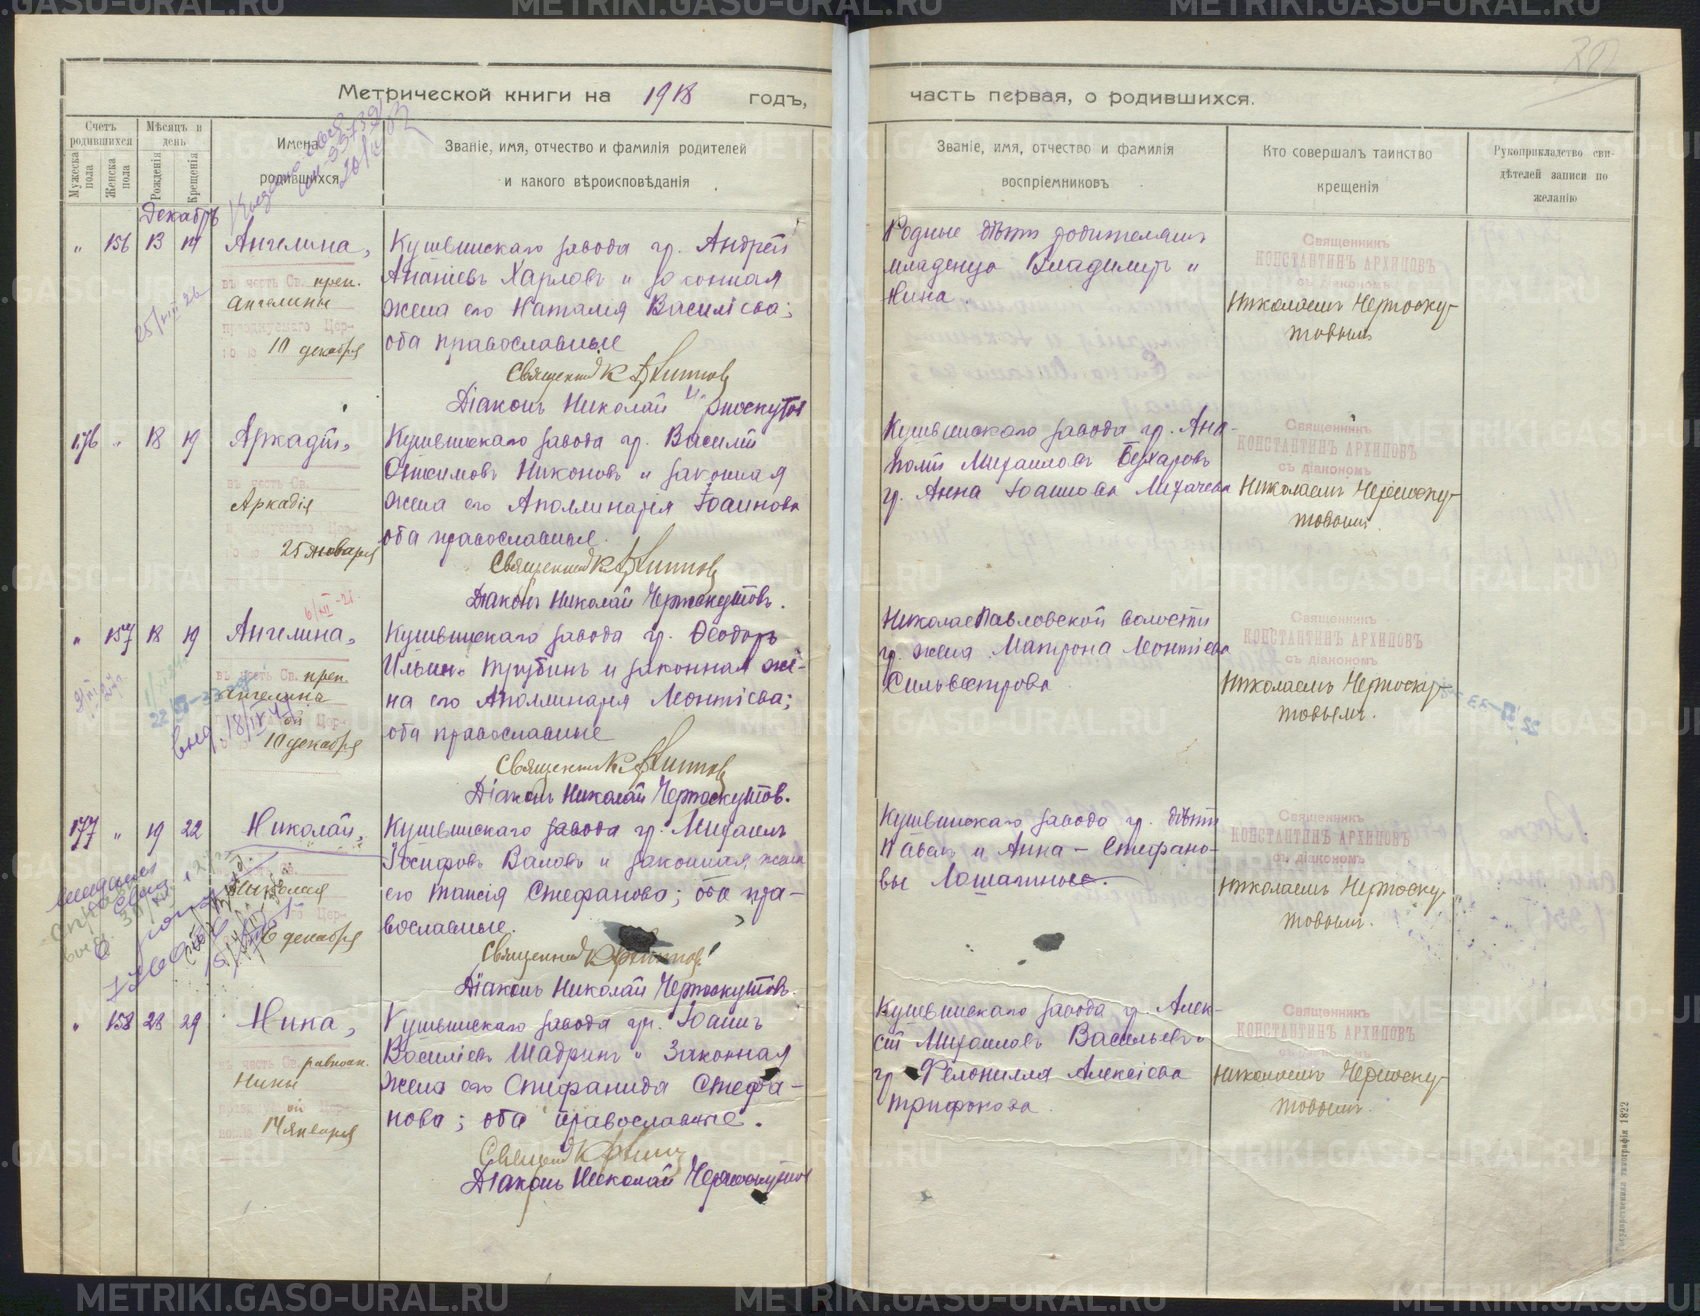 Метрической книги на 1918 годъ,
часть первая, о родившихся.
Счетъ родившихся
Мѣсяцъ и день
Мужеска пола
Женска пола
Рожденія
Крещенія
Имена родившихся.
Званіе, имя, отчество и фамилія родителей
и какого вѣроисповѣданія
Званіе, имя, отчество и фамилія
воспріемниковъ
Кто совершалъ таинство
крещенія
Рукоприкладство сви-
дѣтелей записи по
желанію
Декабрь
" 156 13 14 Ангелина,
въ честь Св. преп.
Ангелины
празднуемаго Цер-
10 декабря
Кушвинскаго завода гр. Андрей
Ананіевъ Харловъ и законная
жена его Наталія Василіева;
оба православные
Священник К Архипов
Діаконъ Николай Черноскутов
Родные дѣти родителямъ
младенца Владимиръ и
Нина.
Священникъ
КОНСТАНТИНЪ АРХИПОВЪ
съ діакономъ
Николаемъ Черноску-
товымъ
176 " 18 19 Аркадій,
въ честь Св.
Аркадія
25 января
Кушвинскаго завода гр. Василій
Онисимовъ Никоновъ и законная
жена его Аполлинарія Іоаннова
оба православные.
Священник К Архипов
Діаконъ Николай Черноскутовъ.
Кушвинскаго завода гр. Ана-
толій Михаиловъ Бухаровъ
гр. Анна Іоаннова Лихачева
Священникъ
КОНСТАНТИНЪ АРХИПОВЪ
съ діакономъ
Николаемъ Черноску-
товымъ.
" 157 18 19 Ангелина,
въ честь Св. преп.
Ангелина
10 декабря
Кушвинскаго завода гр. Ѳеодоръ
Ильинъ Трубинъ и законная же-
на его Аполлинарія Леонтіева;
оба православные
Священник К Архипов
Діаконъ Николай Черноскутов.
НиколаеПавловской волости
гр. жена Матрона Леонтіева
Сильвестрова
Священникъ
КОНСТАНТИНЪ АРХИПОВЪ
съ діакономъ
Николаемъ Черноску-
товымъ.
177 " 19 22 Николай,
Николая
6 декабря
Кушвинскаго завода гр. Михаилъ
Іосифовъ Валовъ и законная жена
его Таисія Стефанова; оба пра-
вославные.
Священник К Архипов
Діаконъ Николай Черноскутовъ.
Кушвинскаго завода гр. дѣти
Павелъ и Анна - Стефано-
вы Лошагины.
Священникъ
КОНСТАНТИНЪ АРХИПОВЪ
съ діакономъ
Николаемъ Черноску-
товымъ.
" 158 28 29 Нина,
въ честь Св. равноап.
Нины
14 января
Кушвинскаго завода гр. Іоаннъ
Василіевъ Шадринъ и законная
жена его Стефанида Стефа-
нова; оба православные.
Священник К Архип
Діаконъ Николай Черноскутов
Кушвинскаго завода гр. Алек-
сій Михаиловъ Васильевъ
гр. Филонилла Алексіева
Трифонова.
Священникъ
КОНСТАНТИНЪ АРХИПОВЪ
Николаемъ Черноску-
товымъ.
Государственная типографія 1822
METRIKI.GASO-URAL.RU